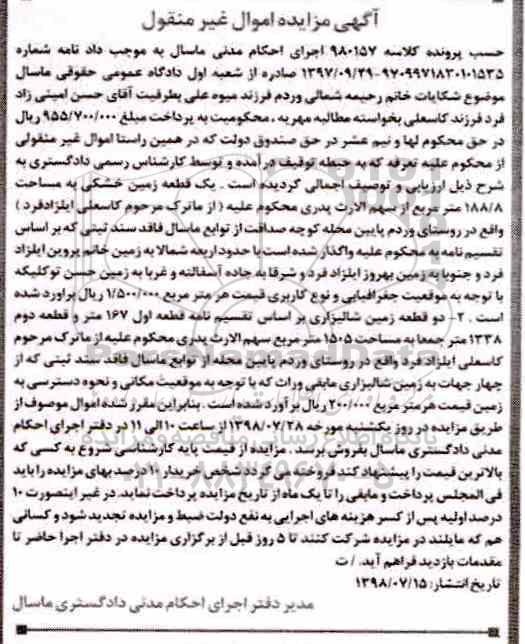 آگهی مزایده اموال غیر منقول
حسب پرونده کلاسه ۹۸۰۱۵۷ اجرای احکام مدنی ماسال به موجب داد نامه شماره
۹۷۰۹۹۷۱۸۳۰۱۰۱۵۳۵-۱۳۹۷/۰۹/۲۹ صادره از شعبه اول دادگاه عمومی حقوقی ماسال
موضوع شکایات خانم رحیمه شمالی وردم فرزند میوه علی بطرفیت آقای حسن امینی زاد
فرد فرزند کاسعلی بخواسته مطالبه مهریه ، محکومیت به پرداخت مبلغ ۹۵۵/۷۰۰/۰۰۰ ریال
در حق محکوم لها و نیم عشر در حق صندوق دولت که در همین راستا اموال غیر منقولی
از محکوم علیه تعرفه که به حیطه توقیف در آمده و توسط کارشناس رسمی دادگستری به
شرح ذیل ارزیابی و توصیف اجمالی گردیده است . یک قطعه زمین خشکی به مساحت
۱۸۸/۸ متر مربع از سهم الارث پدری محکوم علیه ( از ماترک مرحوم کاسعلی ایلزادفرد )
واقع در روستای وردم پایین محله کوچه صداقت از توابع ماسال فاقد سند ثبتی که بر اساس
تقسیم نامه به محکوم علیه واگذار شده است با حدود اربعه شمالا به زمین خانم پروین ایلزاد
فرد و جنوبا به زمین بهروز ایلزاد فرد و شرقا به جاده آسفالته و غربا به زمین حسن توکلیکه
با توجه به موقعیت جغرافیایی و نوع کاربری قیمت هر متر مربع ۱/۵۰۰/۰۰۰ ریال براورد شده
است . ۲- دو قطعه زمین شالیزاری بر اساس تقسیم نامه قطعه اول ۱۶۷ متر و قطعه دوم
۱۳۳۸ متر جمعا به مساحت ۱۵۰۵ متر مربع سهم الارث پدری محکوم علیه از ماترک مرحوم
کاسعلی ایلزاد فرد واقع در روستای وردم پایین محله از توابع ماسال فاقد سند ثبتی که از
چهار جهات به زمین شالیزاری مابقی وراث که با توجه به موقعیت مکانی و نحوه دسترسی به
زمین قیمت هر متر مربع ۲۰۰/۰۰۰ ریال بر آورد شده است . بنابراین مقرر شده اموال موصوف از
طریق مزایده در روز یکشنبه مورخه ۱۳۹۸/۰۷/۲۸ از ساعت ۱۰ الی ۱۱ در دفتر اجرای احکام
مدنی دادگستری ماسال بفروش برسد . مزایده از قیمت پایه کارشناسی شروع به کسی که
بالاترین قیمت را پیشنهاد کند فروخته می گردد شخص خریدار ۱۰ درصد بهای مزایده را باید
فی المجلس پرداخت و مابقی را تا یک ماه از تاریخ مزایده پرداخت نماید. در غیر اینصورت ۱۰
درصد اولیه پس از کسر هزینه های اجرایی به نفع دولت ضبط و مزایده تجدید شود و کسانی
هم که مایلند در مزایده شرکت کنند تا ۵ روز قبل از برگزاری مزایده در دفتر اجرا حاضر تا
مقدمات بازدید فراهم آید. / ت
تاریخ انتشار: ۱۳۹۸/۰۷/۱۵
مدیر دفتر اجرای احکام مدنی دادگستری ماسال